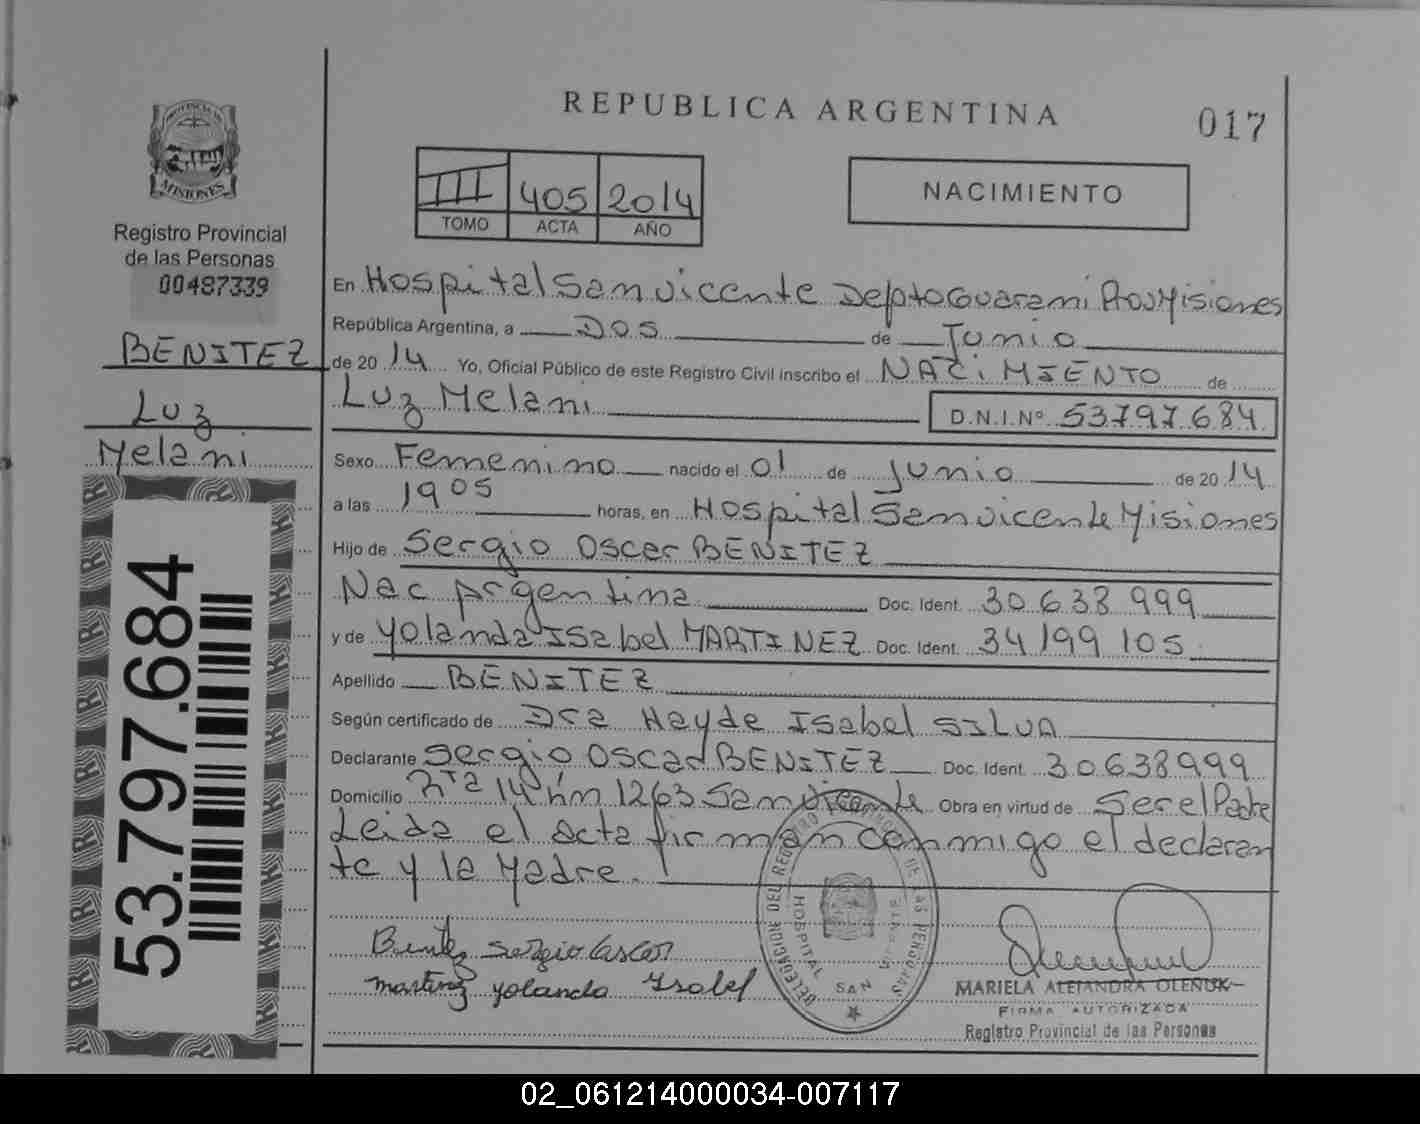 REPUBLICA ARGENTINA
017
PROVINCIA DE
MISIONES
Registro Provincial
de las Personas
00487339
BENITEZ
Luz
Melani
53.797.684
III 405 2014
TOMO ACTA AÑO
NACIMIENTO
En Hospital San vicente Depto Guarani Prov Misiones
República Argentina, a Dos de Junio
de 2014 Yo, Oficial Público de este Registro Civil inscribo el NACIMIENTO de
Luz Melani D.N.I.Nº 53.797.684
Sexo Femenino nacido el 01 de Junio de 2014
a las 1905 horas, en Hospital San vicente Misiones
Hijo de Sergio Oscar BENITEZ
Nac Argentina Doc. Ident. 30 638 999
y de Yolanda Isabel MARTINEZ Doc. Ident. 34 199 105
Apellido BENITEZ
Según certificado de Dra Hayde Isabel SILVA
Declarante Sergio Oscar BENITEZ Doc. Ident. 30638999
Domicilio Rta 14 km 1263 San Vicente Obra en virtud de Ser el Padre
Leida el acta firman conmigo el declaran
te y la Madre.
Benitez Sergio Oscar
Martinez Yolanda Isabel
DELEGACION DEL REGISTRO PROVINCIAL DE LAS PERSONAS
HOSPITAL SAN VICENTE
MARIELA ALEJANDRA OLENUK
FIRMA AUTORIZADA
Registro Provincial de las Personas
02_061214000034-007117